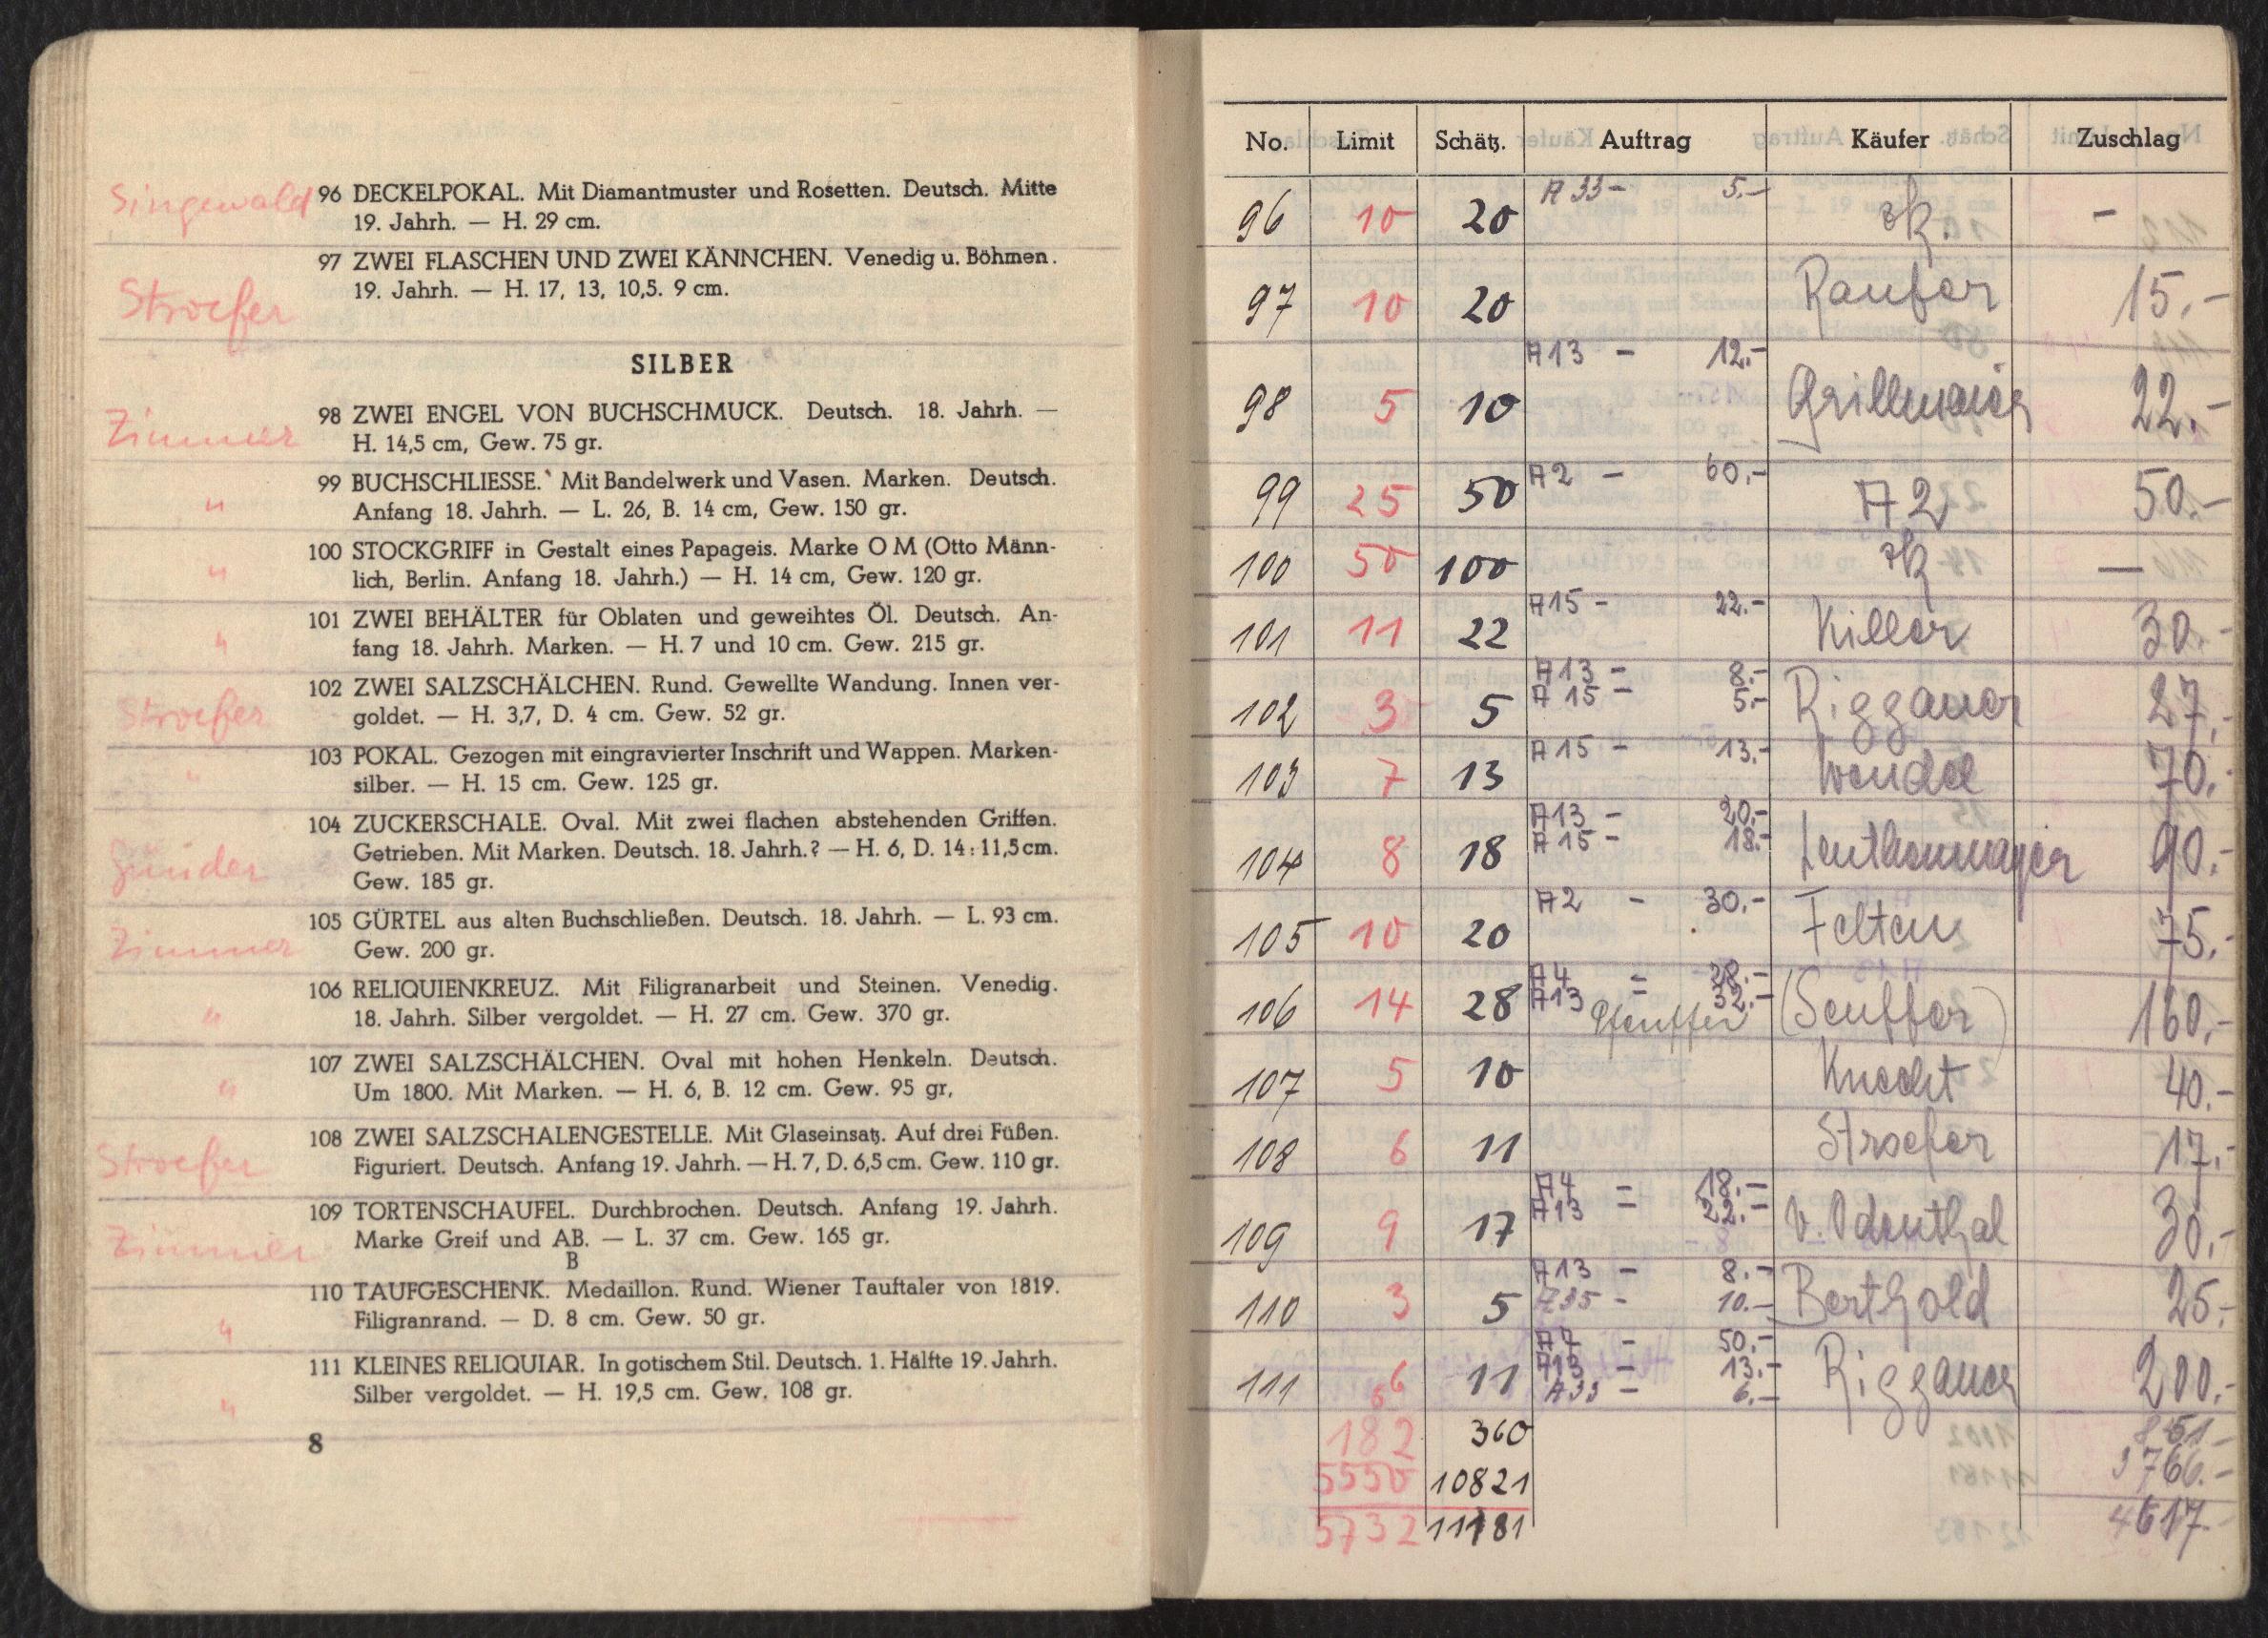 Singewald
96 DECKELPOKAL. Mit Diamantmuster und Rosetten. Deutsch. Mitte
19. Jahrh. — H. 29 cm.
97 ZWEI FLASCHEN UND ZWEI KÄNNCHEN. Venedig u. Böhmen.
19. Jahrh. — H. 17, 13, 10,5. 9 cm.
Stroefer
SILBER
98 ZWEI ENGEL VON BUCHSCHMUCK. Deutsch. 18. Jahrh. —
Zimmer
H. 14,5 cm, Gew. 75 gr.
99 BUCHSCHLIESSE. Mit Bandelwerk und Vasen. Marken. Deutsch.
" Anfang 18. Jahrh. — L. 26, B. 14 cm, Gew. 150 gr.
100 STOCKGRIFF in Gestalt eines Papageis. Marke O M (Otto Männ-
" lich, Berlin. Anfang 18. Jahrh.) — H. 14 cm, Gew. 120 gr.
101 ZWEI BEHÄLTER für Oblaten und geweihtes Öl. Deutsch. An-
" fang 18. Jahrh. Marken. — H. 7 und 10 cm. Gew. 215 gr.
102 ZWEI SALZSCHÄLCHEN. Rund. Gewellte Wandung. Innen ver-
Stroefer
goldet. — H. 3,7, D. 4 cm. Gew. 52 gr.
103 POKAL. Gezogen mit eingravierter Inschrift und Wappen. Marken-
" silber. — H. 15 cm. Gew. 125 gr.
104 ZUCKERSCHALE. Oval. Mit zwei flachen abstehenden Griffen.
Getrieben. Mit Marken. Deutsch. 18. Jahrh.? — H. 6, D. 14:11,5 cm.
Gew. 185 gr.
105 GÜRTEL aus alten Buchschließen. Deutsch. 18. Jahrh. — L. 93 cm.
Zimmer
Gew. 200 gr.
106 RELIQUIENKREUZ. Mit Filigranarbeit und Steinen. Venedig.
" 18. Jahrh. Silber vergoldet. — H. 27 cm. Gew. 370 gr.
107 ZWEI SALZSCHÄLCHEN. Oval mit hohen Henkeln. Deutsch.
" Um 1800. Mit Marken. — H. 6, B. 12 cm. Gew. 95 gr,
108 ZWEI SALZSCHALENGESTELLE. Mit Glaseinsatz. Auf drei Füßen.
Stroefer
Figuriert. Deutsch. Anfang 19. Jahrh. — H. 7, D. 6,5 cm. Gew. 110 gr.
109 TORTENSCHAUFEL. Durchbrochen. Deutsch. Anfang 19. Jahrh.
Zimmer
Marke Greif und AB. — L. 37 cm. Gew. 165 gr.
B
110 TAUFGESCHENK. Medaillon. Rund. Wiener Tauftaler von 1819.
" Filigranrand. — D. 8 cm. Gew. 50 gr.
111 KLEINES RELIQUIAR. In gotischem Stil. Deutsch. 1. Hälfte 19. Jahrh.
" Silber vergoldet. — H. 19,5 cm. Gew. 108 gr.
8
No. Limit Schätz. Auftrag Käufer Zuschlag
A 33 - 5.-
96 10 20 zk. -
97 10 20 Raufer 15.-
A13 - 12.-
98 5 10 Grillmaier 22.-
A2 - 60.-
99 25 50 A2 50.-
100 50 100 zk —
A15 - 22.-
101 11 22 Killer 30.-
A13 - 8.-
A15 - 5.-
102 3 5 Riggauer 27.-
A15 - 13.-
103 7 13 Wendel 70.-
A13 - 20.-
A15 - 18.-
104 8 18 Leuthenmayer 90.-
A2 - 30.-
105 10 20 Felten 75.-
A4 = 28.-
A13 32.-
106 14 28 Pfeuffer (Seuffer) 160.-
107 5 10 Knecht 40.-
108 6 11 Stroefer 17.-
A4 = 18.-
A13 = 22.-
109 9 17 v. Odenthal 30.-
A13 - 8.-
A35 - 10.-
110 3 5 Berthold 25.-
50.-
A13 - 13.-
A33 - 6.-
111 6 11 Riggauer 200.-
182 360 851.-
5550 10821 3766.-
5732 11181 4617.-